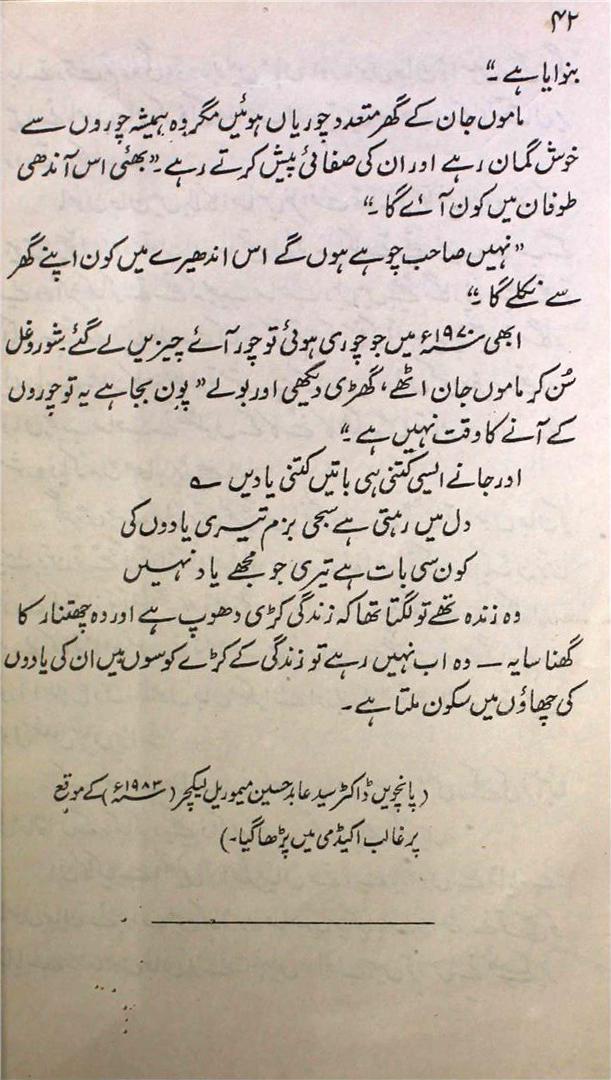 ۴۲
بنوایا ہے۔"
ماموں جان کے گھر متعدد چوریاں ہوئیں مگر وہ ہمیشہ چوروں سے
خوش گمان رہے اور ان کی صفائی پیش کرتے رہے۔ "بھئی اس آندھی
طوفان میں کون آئے گا۔"
"نہیں صاحب چوہے ہوں گے اس اندھیرے میں کون اپنے گھر
سے نکلے گا۔"
ابھی ۱۹۷۰ء میں جو چوری ہوئی تو چور آئے چیزیں لے گئے۔ شور و غل
سُن کر ماموں جان اٹھے، گھڑی دیکھی اور بولے "پون بجا ہے یہ تو چوروں
کے آنے کا وقت نہیں ہے۔"
اور جانے ایسی کتنی ہی باتیں کتنی یادیں ؎
دل میں رہتی ہے سجی بزم تیری یادوں کی
کون سی بات ہے تیری جو مجھے یاد نہیں
وہ زندہ تھے تو لگتا تھا کہ زندگی کڑی دھوپ ہے اور وہ چھتنار کا
گھنا سایہ — وہ اب نہیں رہے تو زندگی کے کڑے کوسوں میں ان کی یادوں
کی چھاؤں میں سکون ملتا ہے۔
(پانچویں ڈاکٹر سید عابد حسین میموریل لیکچر (۱۹۸۳ء) کے موقع
پر غالب اکیڈمی میں پڑھا گیا۔)